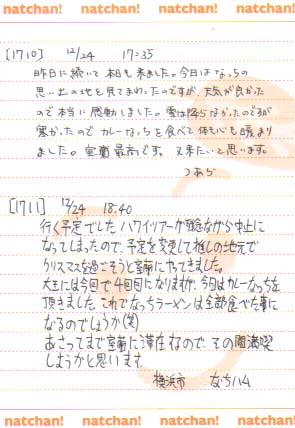 natchan! natchan! natchan! natchan!
[1710] 12/24 17:35
昨日に続いて本日も来ました。今日はなっちの
思い出の地を見てまわったのですが、天気が良かった
ので本当に感動しました。雪は降らなかったのですが
寒かったのでカレーなっちを食べて体も心も暖まり
ました。室蘭最高です。又来たいと思います。
つあら
[1711] 12/24 18:40
行く予定でしたハワイツアーが残念ながら中止に
なってしまったので、予定を変更して推しの地元で
クリスマスを過ごそうと室蘭にやってきました。
大王には今回で4回目になりますが、今回はカレーなっちを
頂きました。これでなっちラーメンは全部食べた事に
なるのでしょうか(笑)
あさってまで室蘭に滞在なので、その間満喫
しようかと思います。
横浜市 なちハム
natchan! natchan! natchan! natchan!